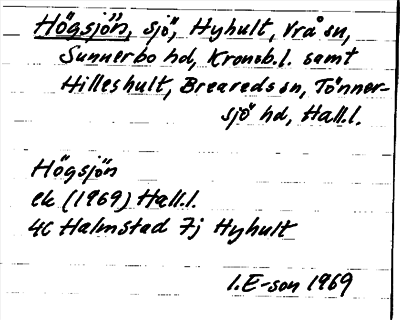 Högsjön, sjö, Hyhult, Vrå sn,
Sunnerbo hd, Kronob.l. samt
Hilleshult, Breareds sn, Tönner-
sjö hd, Hall.l.
Högsjön
ek (1969) Hall.l.
4C Halmstad 7j Hyhult
I.E-son 1969